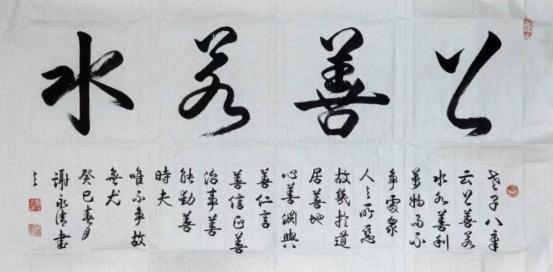 上善若水
老子八章
云上善若
水水善利
萬物而不
争處衆
人之所惡
故幾於道
居善地
心善淵與
善仁言
善信正善
治事善
能動善
時夫
唯不争故
無尤
癸巳春月
謝永清書
之